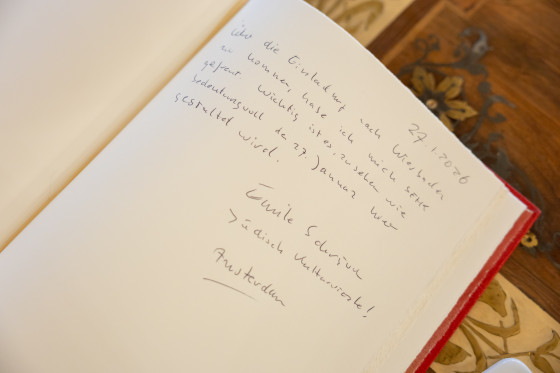 27.1.2026
Über die Einladung nach Wiesbaden
zu kommen, habe ich mich sehr
gefreut. Wichtig ist es zu sehen wie
bedeutungsvoll der 27. Januar hier
gestaltet wird.
Emile Schrijver
Jüdisch Kulturviertel
Amsterdam